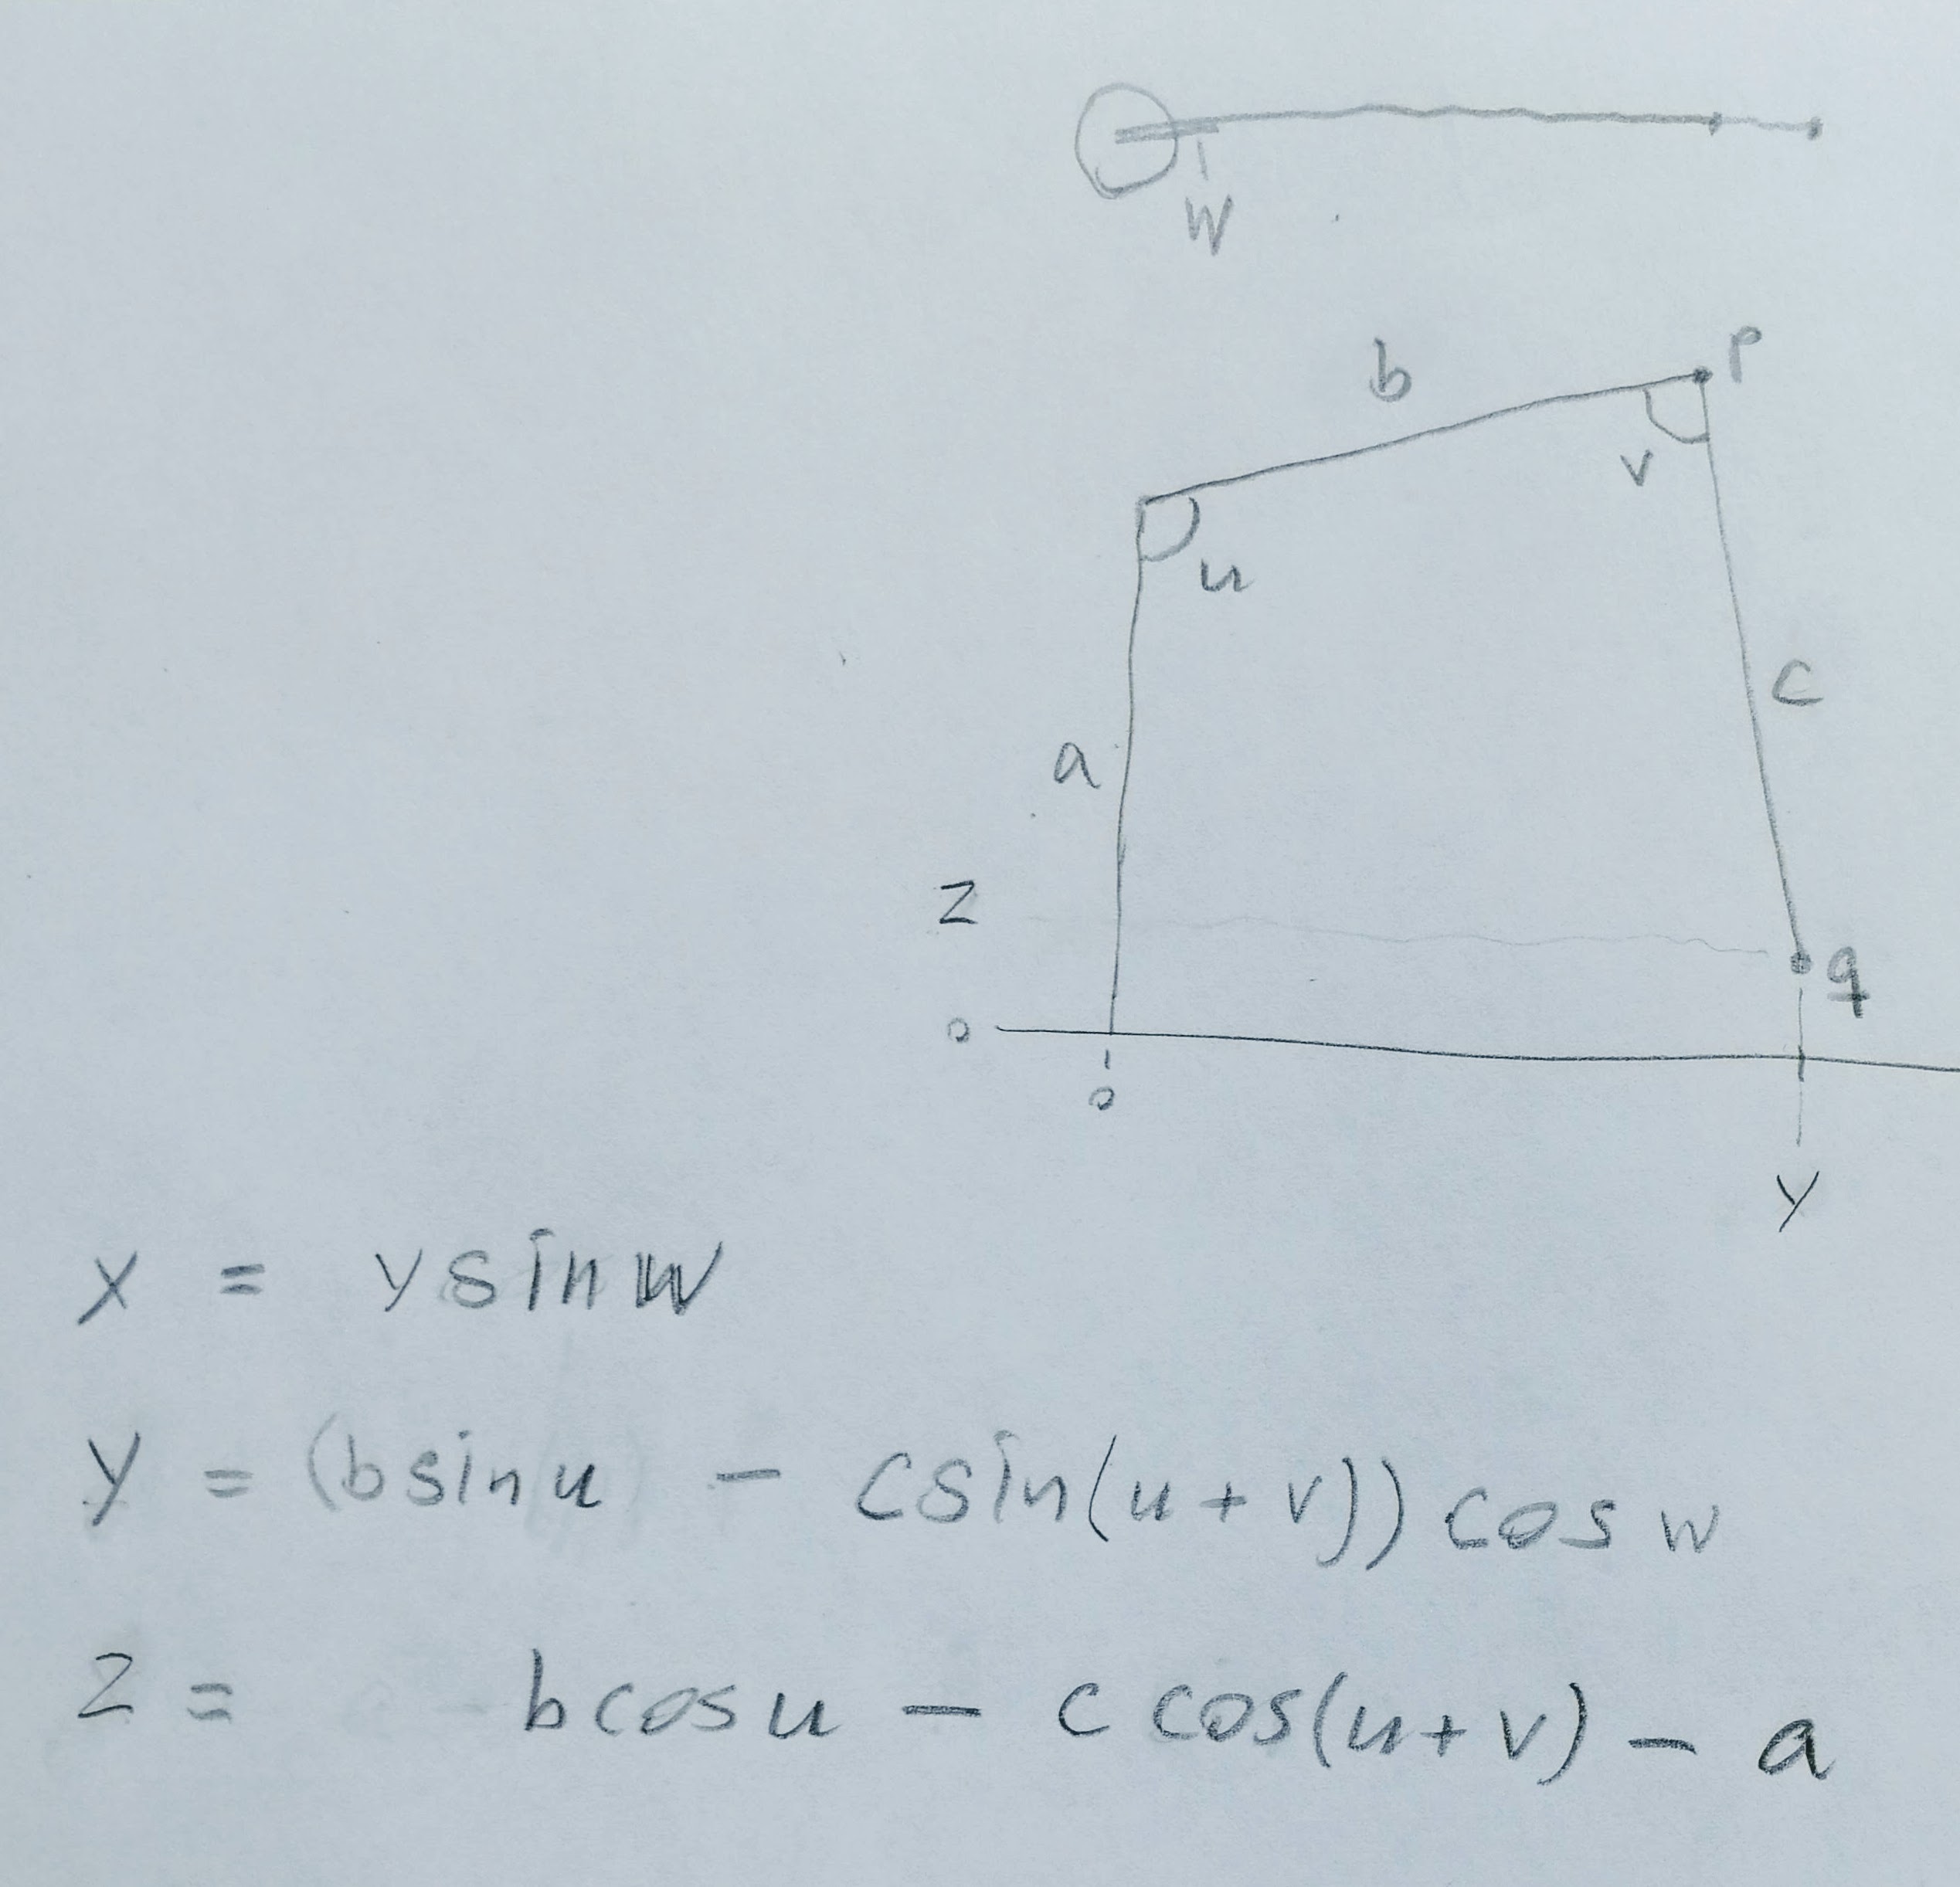 W
b
P
v
u
c
a
z
q
o
o
y
x = y sin w
y = (b sin u - c sin(u + v)) cos w
z = b cos u - c cos(u + v) - a